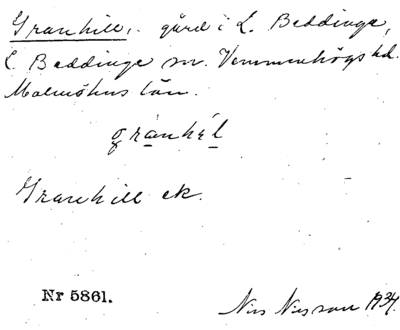 Granhill, gård i L. Beddinge,
L Beddinge sn. Vemmenhögs hd.
Malmöhus län.
granhél
Granhill ek.
Nr 5861.
Nils Nilsson 1934.